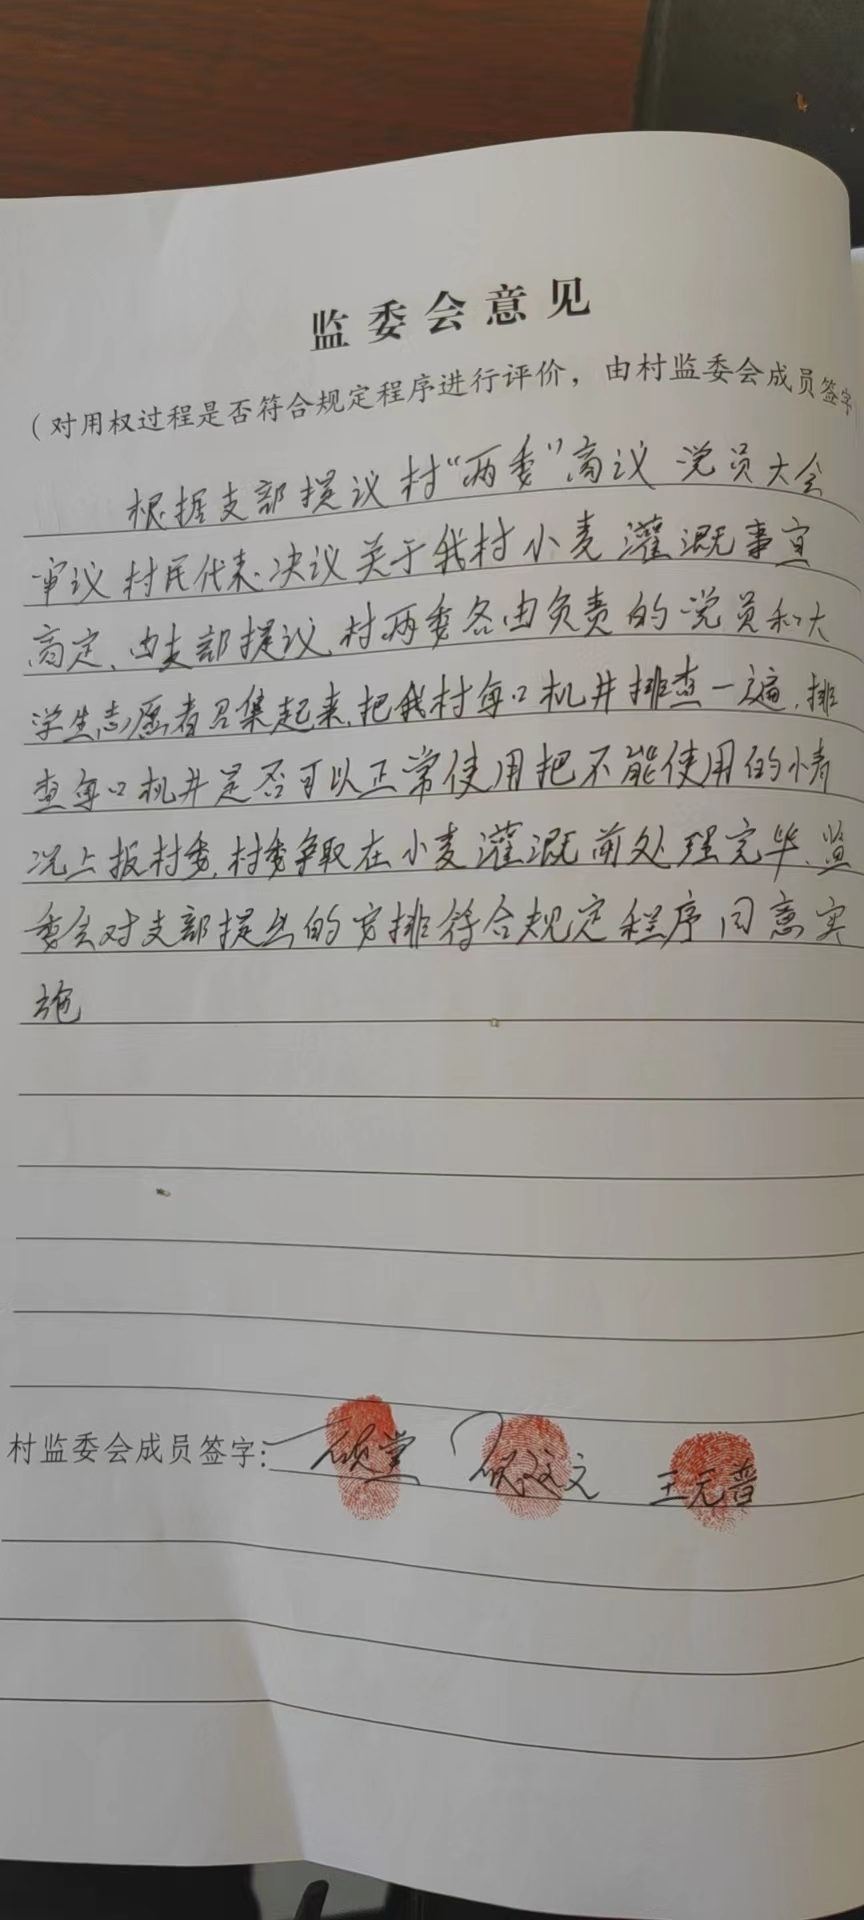 监委会意见
（对用权过程是否符合规定程序进行评价，由村监委会成员签字
根据支部提议村“两委”商议党员大会
审议村民代表决议关于我村小麦灌溉事宜
商定、由支部提议，村两委各由负责的党员和大
学生志愿者召集起来，把我村每口机井排查一遍，排
查每口机井是否可以正常使用把不能使用的情
况上报村委，村委争取在小麦灌溉前处理完毕、监
委会对支部提出的安排符合规定程序同意实
施
村监委会成员签字: 王元普